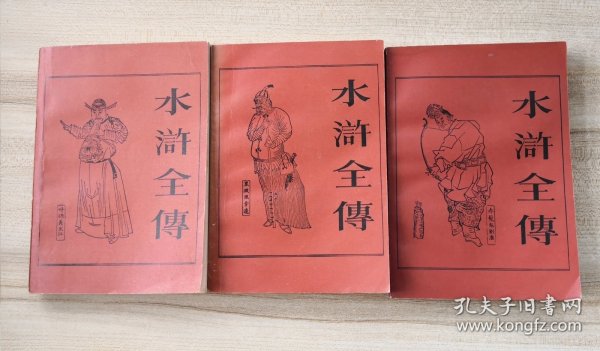 水滸全傳
呼保義宋江
水滸全傳
水滸全傳
孔夫子旧书网
www.kongfz.com